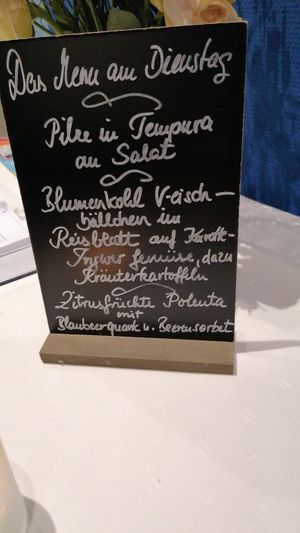 Das Menu am Dienstag
Pilze in Tempura
an Salat
Blumenkohl V-eisch-
bällchen im
Reisblatt auf Karott-
Ingwer gemüse, dazu
Kräuterkartoffeln
Zitrusfrüchte Polenta
mit
Blaubeerquark u. Beerensorbet